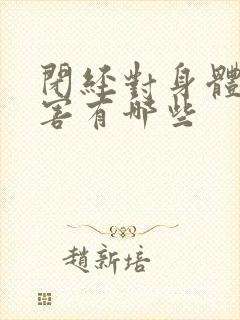 閉經對身體
害有哪些
趙新培